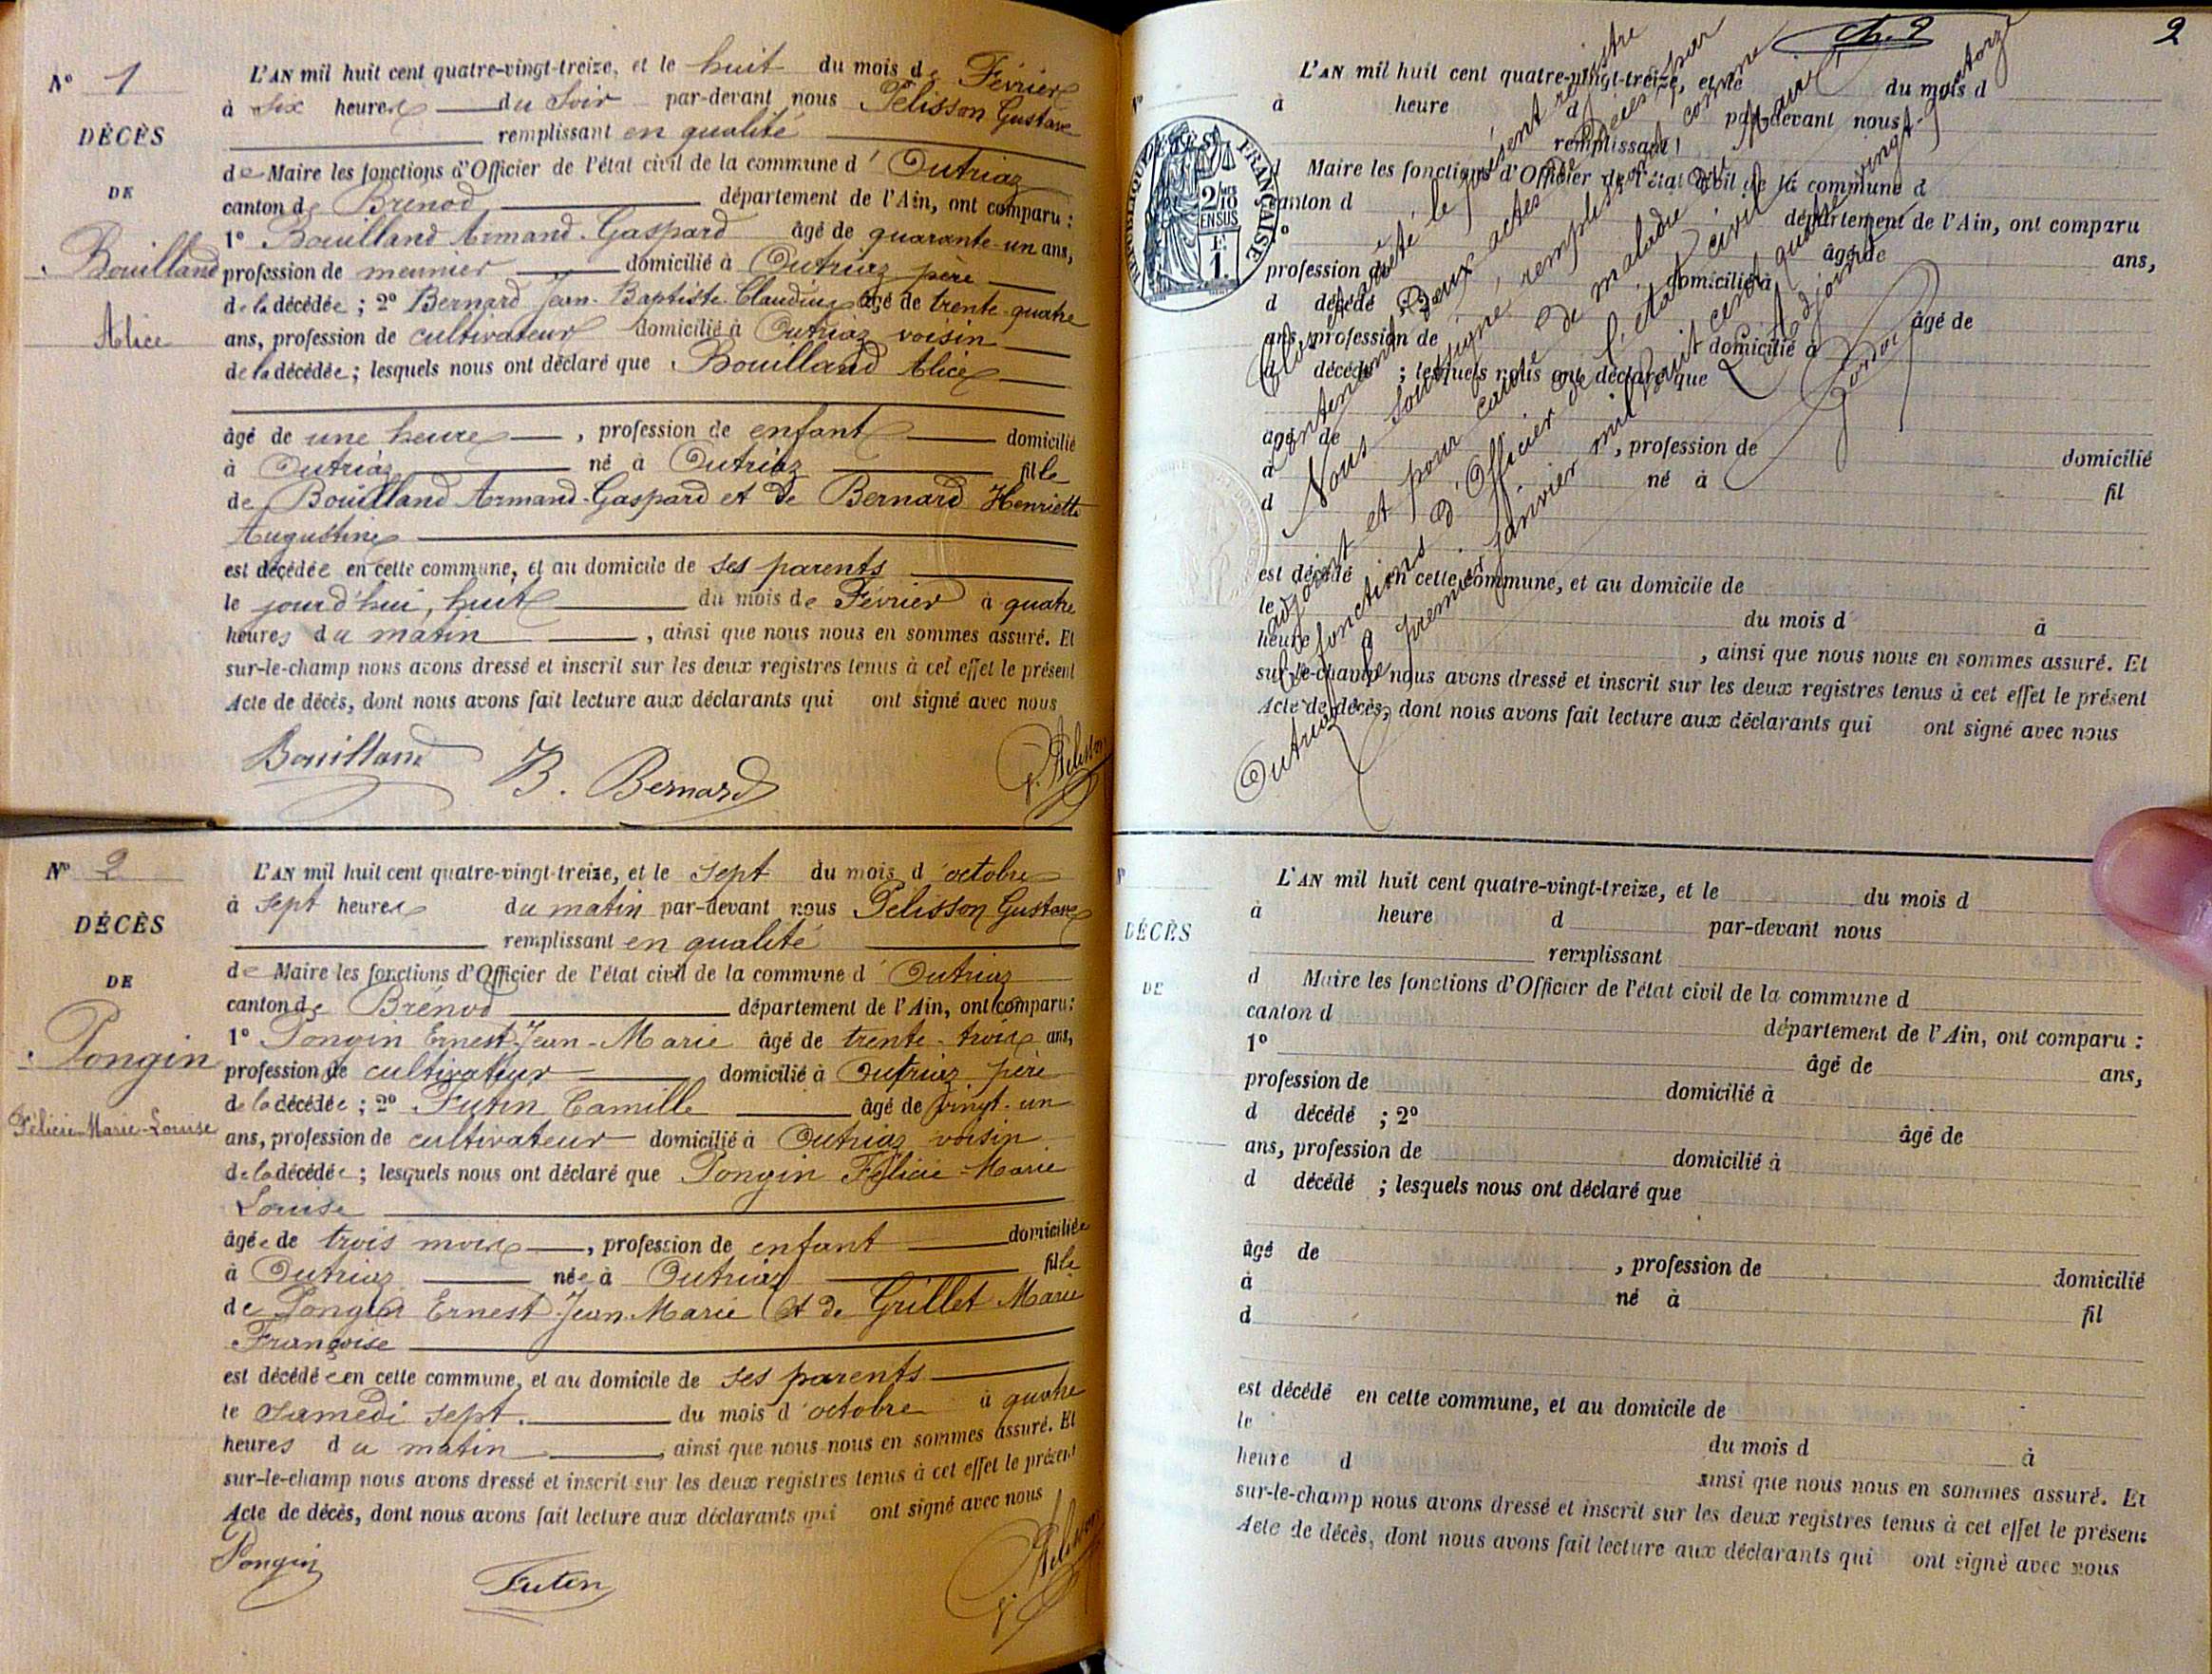 N° 1
DÉCÈS
DE
Bouilland
Alice
L'AN mil huit cent quatre-vingt-treize, et le huit du mois de Février
à six heures du soir par-devant nous Pélisson Gustave
remplissant en qualité
de Maire les fonctions d'Officier de l'état civil de la commune d' Outriaz
canton de Brénod département de l'Ain, ont comparu :
1° Bouilland Armand-Gaspard âgé de quarante-un ans,
profession de meunier domicilié à Outriaz père
de la décédée ; 2° Bernard Jean-Baptiste-Claudius âgé de trente-quatre
ans, profession de cultivateur domicilié à Outriaz voisin
de la décédée ; lesquels nous ont déclaré que Bouilland Alice
âgé de une heure , profession de enfant domicilié
à Outriaz né à Outriaz fille
de Bouilland Armand-Gaspard et de Bernard Henriette
Augustine
est décédée en cette commune, et au domicile de ses parents
le jourd'hui, huit du mois de Février à quatre
heures du matin , ainsi que nous nous en sommes assuré. Et
sur-le-champ nous avons dressé et inscrit sur les deux registres tenus à cet effet le présent
Acte de décès, dont nous avons fait lecture aux déclarants qui ont signé avec nous
Bouilland B. Bernard G. Pelisson
N° 2
DÉCÈS
DE
Pongin
Félicie-Marie-Louise
L'AN mil huit cent quatre-vingt-treize, et le sept du mois d'octobre
à sept heures du matin par-devant nous Pelisson Gustave
remplissant en qualité
de Maire les fonctions d'Officier de l'état civil de la commune d' Outriaz
canton de Brénod département de l'Ain, ont comparu :
1° Pongin Ernest-Jean-Marie âgé de trente-trois ans,
profession de cultivateur domicilié à Outriaz père
de la décédée ; 2° Futin Camille âgé de vingt-un
ans, profession de cultivateur domicilié à Outriaz voisin
de la décédée ; lesquels nous ont déclaré que Pongin Félicie-Marie
Louise
âgée de trois mois , profession de enfant domiciliée
à Outriaz née à Outriaz fille
de Pongin Ernest-Jean-Marie et de Grillet Marie
Françoise
est décédée en cette commune, et au domicile de ses parents
le samedi sept. du mois d'octobre à quatre
heures du matin , ainsi que nous nous en sommes assuré. Et
sur-le-champ nous avons dressé et inscrit sur les deux registres tenus à cet effet le présent
Acte de décès, dont nous avons fait lecture aux déclarants qui ont signé avec nous
Pongin Futin G. Pelisson
2
RÉPUBLIQUE FRANÇAISE
EN SUS
L'AN mil huit cent quatre-vingt-treize, et le du mois d
à heure d par-devant nous
remplissant
d Maire les fonctions d'Officier de l'état civil de la commune d
canton d département de l'Ain, ont comparu
1° âgé de ans,
profession de domicilié à
d décédé ; 2° âgé de
ans, profession de domicilié à
d décédé ; lesquels nous ont déclaré que
âgé de , profession de domicilié
à né à fil
d
est décédé en cette commune, et au domicile de
le du mois d à
heure d , ainsi que nous nous en sommes assuré. Et
sur-le-champ nous avons dressé et inscrit sur les deux registres tenus à cet effet le présent
Acte de décès, dont nous avons fait lecture aux déclarants qui ont signé avec nous
Clos et arrêté le présent registre
contenant Deux actes de Décès par
Nous soussigné, remplissant comme
adjoint et pour cause de maladie du Maire
les fonctions d'Officier de l'état civil
Outriaz le premier Janvier mil huit cent quatre vingt-quatorze
L'adjoint
N°
DÉCÈS
DE
L'AN mil huit cent quatre-vingt-treize, et le du mois d
à heure d par-devant nous
remplissant
d Maire les fonctions d'Officier de l'état civil de la commune d
canton d département de l'Ain, ont comparu :
1° âgé de ans,
profession de domicilié à
d décédé ; 2° âgé de
ans, profession de domicilié à
d décédé ; lesquels nous ont déclaré que
âgé de , profession de domicilié
à né à fil
d
est décédé en cette commune, et au domicile de
le du mois d à
heure d ainsi que nous nous en sommes assuré. Et
sur-le-champ nous avons dressé et inscrit sur les deux registres tenus à cet effet le présent
Acte de décès, dont nous avons fait lecture aux déclarants qui ont signé avec nous